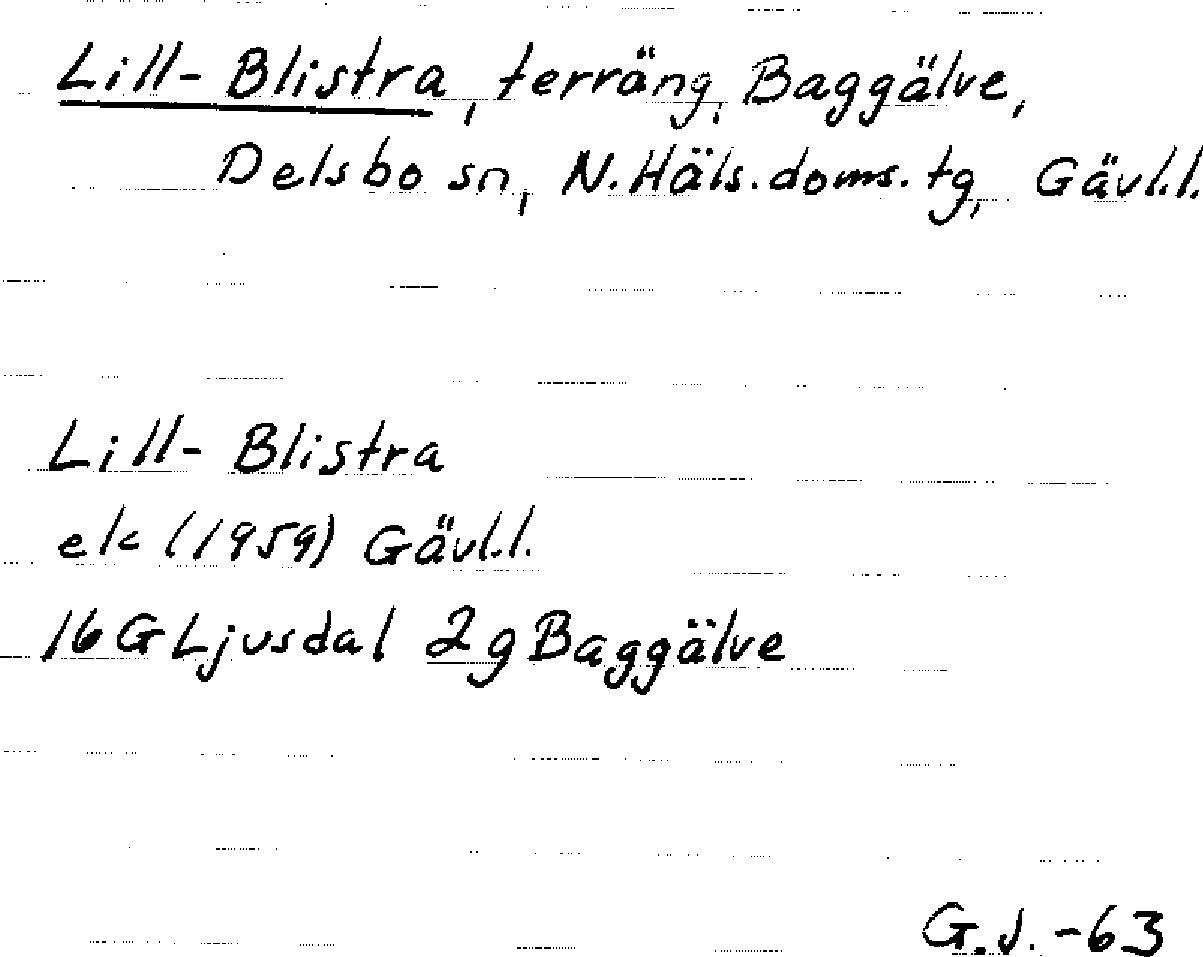 Lill-Blistra, terräng, Baggälve,
Delsbo sn, N. Häls. doms. tg, Gävl.l.
Lill-Blistra
ek (1959) Gävl.l.
16G Ljusdal 2g Baggälve
G.J. -63